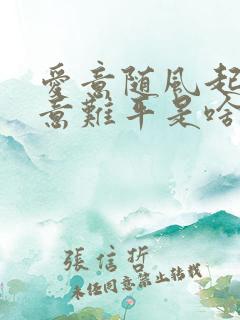 愛意随風起
意難平是啥
張信哲
未经同意禁止转载